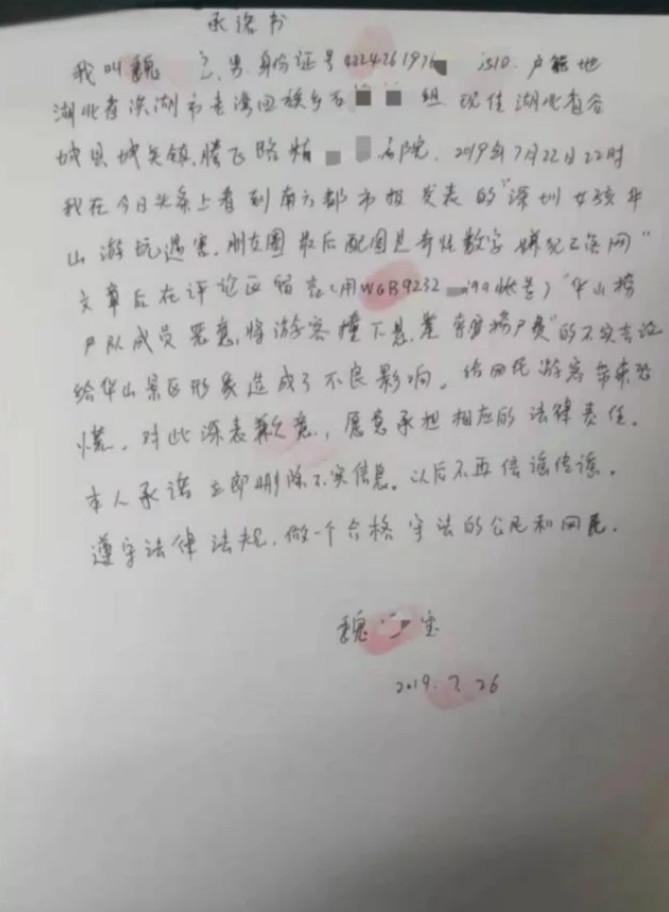 承诺书
我叫魏 男 身份证号4224261976 1510. 户籍地
湖北省洪湖市老湾回族乡 组. 现住湖北省谷
城县城关镇.腾飞路 名院. 2019年7月22日22时
我在今日头条上看到南方都市报发表的"深圳女孩华
山游玩遇害.朋友圈最后配图是奇怪数字 嫌犯已落网"
文章后在评论区留言(用WGB9232 账号)"华山捞
尸队成员恶意,将游客撞下悬崖 索要捞尸费"的不实言论
给华山景区形象造成了不良影响。给网民游客带来恐
慌。对此深表歉意,愿意承担相应的法律责任。
本人承诺立即删除不实信息。以后不再信谣传谣。
遵守法律法规.做一个合格守法的公民和网民.
魏 宝
2019.7.26